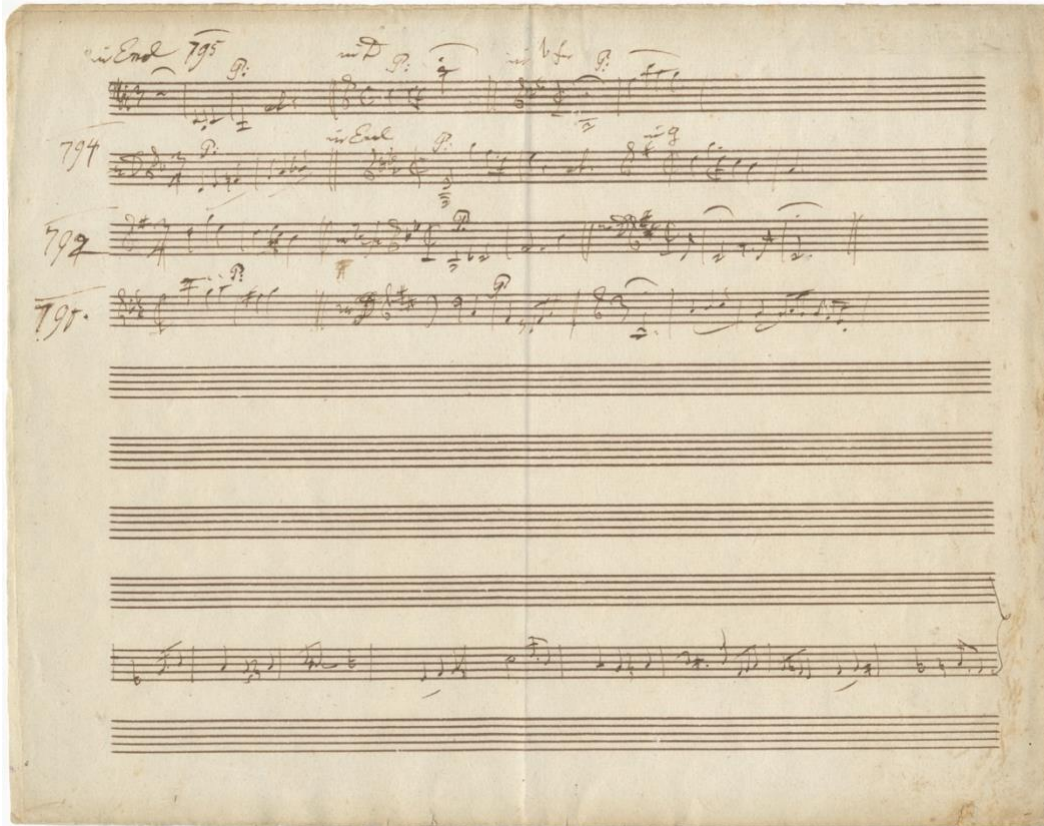 in Emol 795 P: in D P: in b fa P:
794 P: in Emol P: in G
792 P:
791. P: P: